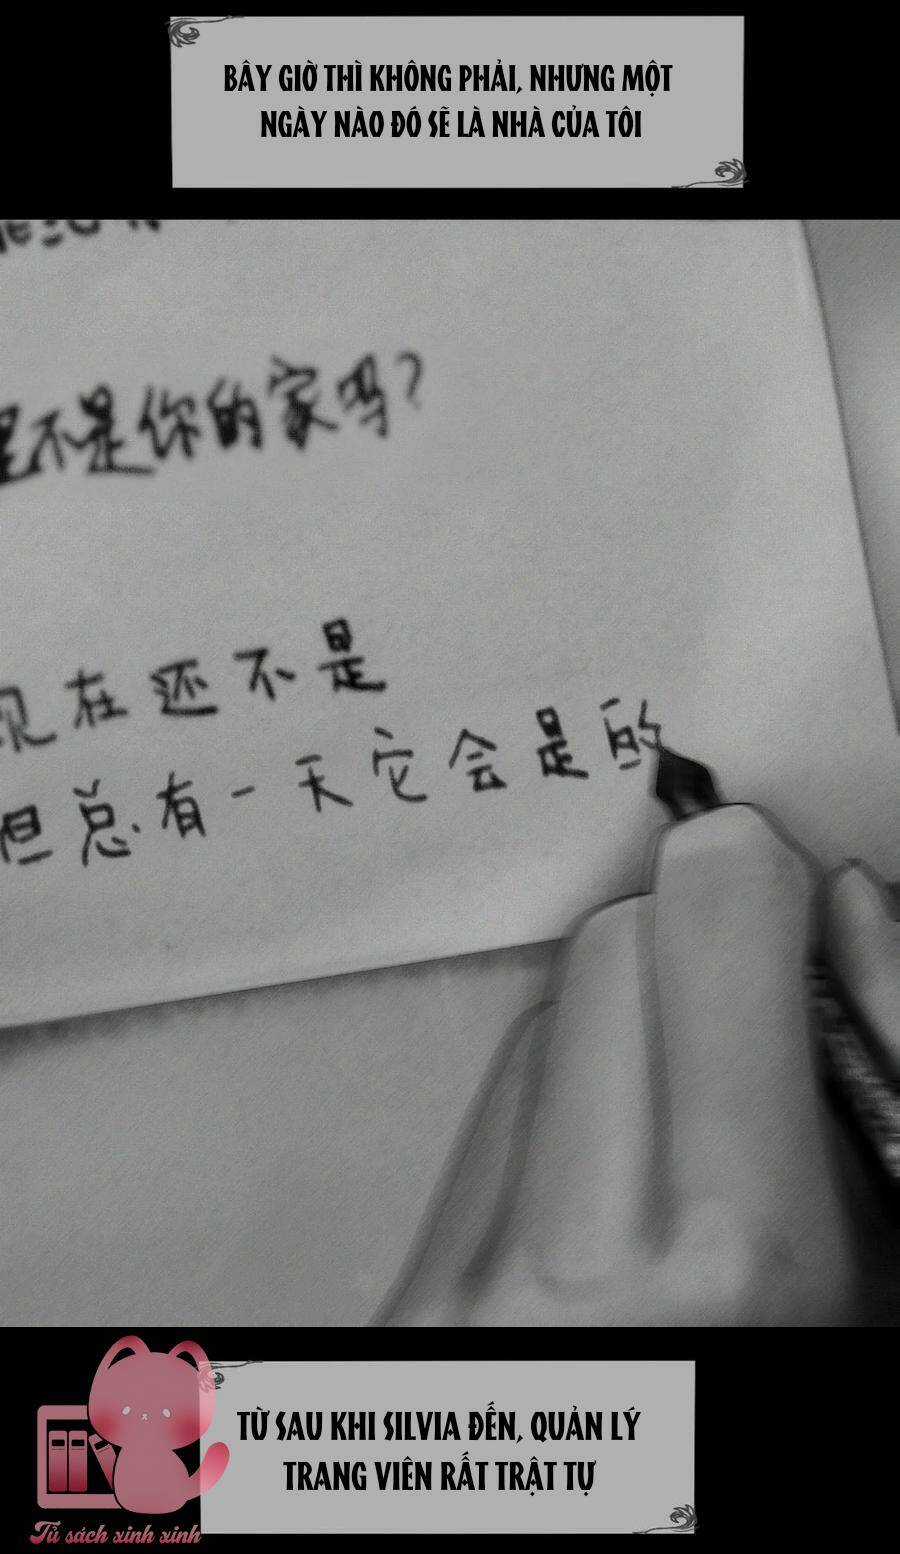 BÂY GIỜ THÌ KHÔNG PHẢI, NHƯNG MỘT
NGÀY NÀO ĐÓ SẼ LÀ NHÀ CỦA TÔI
不是你的家吗?
现在还不是
但总有一天它会是的
TỪ SAU KHI SILVIA ĐẾN, QUẢN LÝ
TRANG VIÊN RẤT TRẬT TỰ
Tủ sách xinh xinh